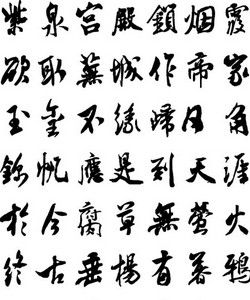 紫泉宮殿鎖烟霞
欲取蕪城作帝家
玉璽不緣歸日角
錦帆應是到天涯
於今腐草無螢火
終古垂楊有暮鴉